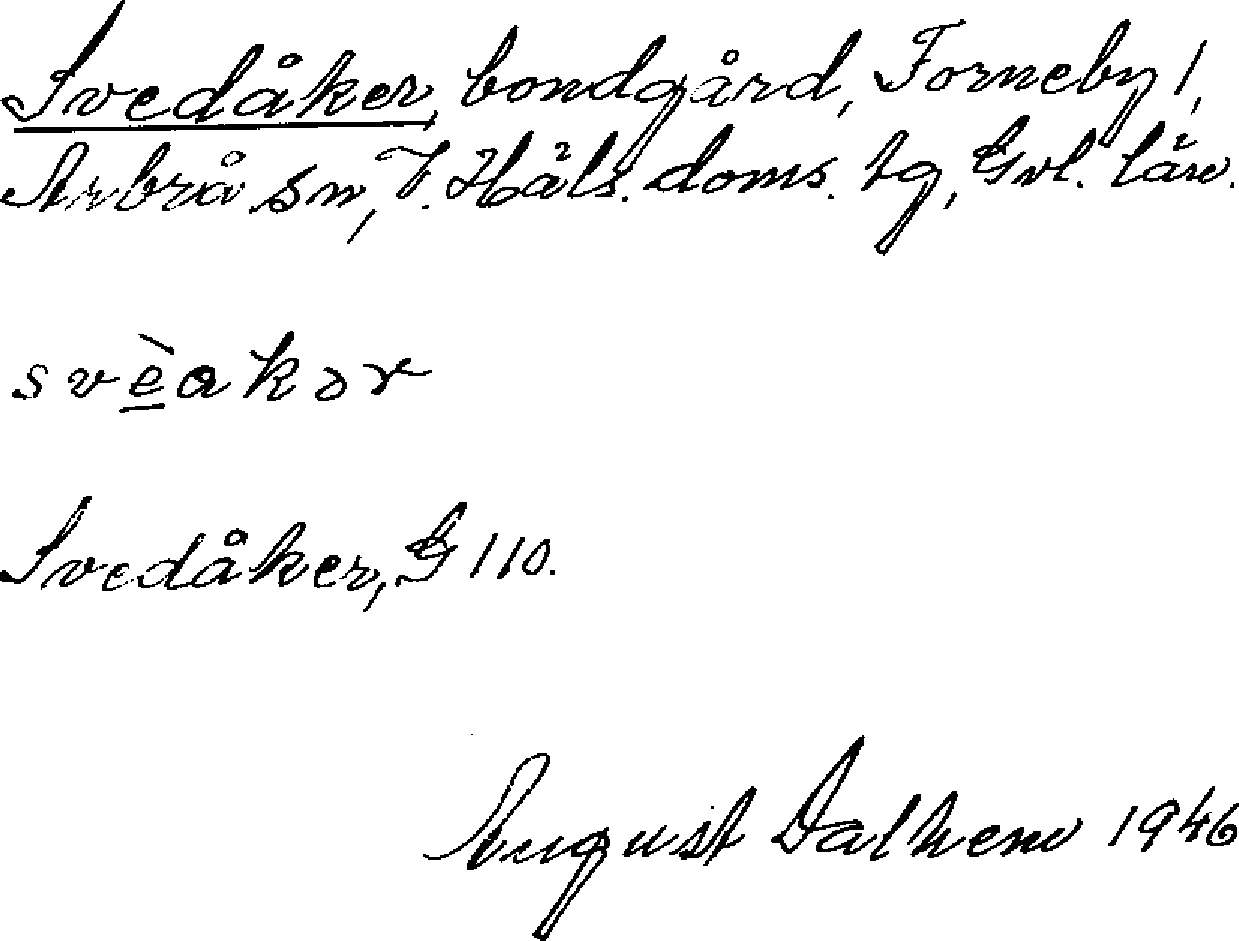 Svedåker, bondgård, Forneby 1,
Arbrå sn, V. Häls. doms. tg, Gvl. län.
svèakər
Svedåker, G 110.
August Dalhem 1946